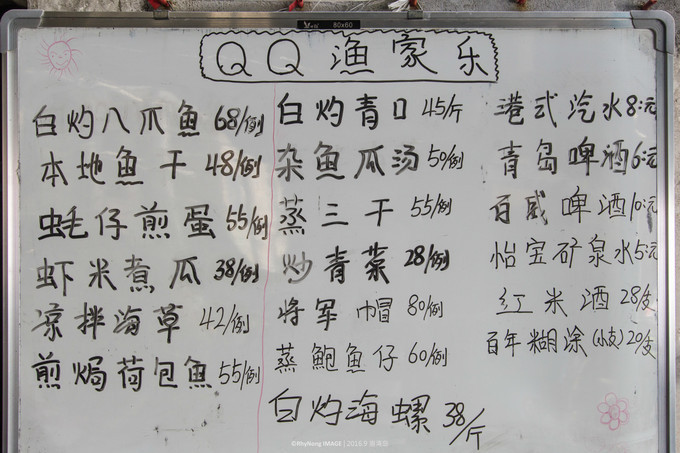 80x60
QQ 渔家乐
白灼八爪鱼 68/例
本地鱼干 48/例
蚝仔煎蛋 55/例
虾米煮瓜 38/例
凉拌海草 42/例
煎焗荷包鱼 55/例
白灼青口 45/斤
杂鱼瓜汤 50/例
蒸三干 55/例
炒青菜 28/例
将军帽 80/例
蒸鲍鱼仔 60/例
白灼海螺 38/斤
港式汽水 8元
青岛啤酒 6元
百威啤酒 10元
怡宝矿泉水 5元
红米酒 28/支
百年糊涂(小支) 20/支
©RhyNong IMAGE | 2018